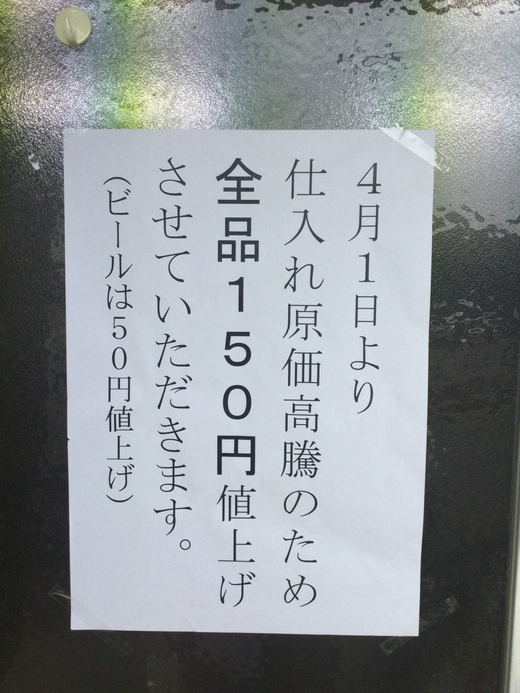 ４月１日より
仕入れ原価高騰のため
全品１５０円値上げ
させていただきます。
（ビールは５０円値上げ）